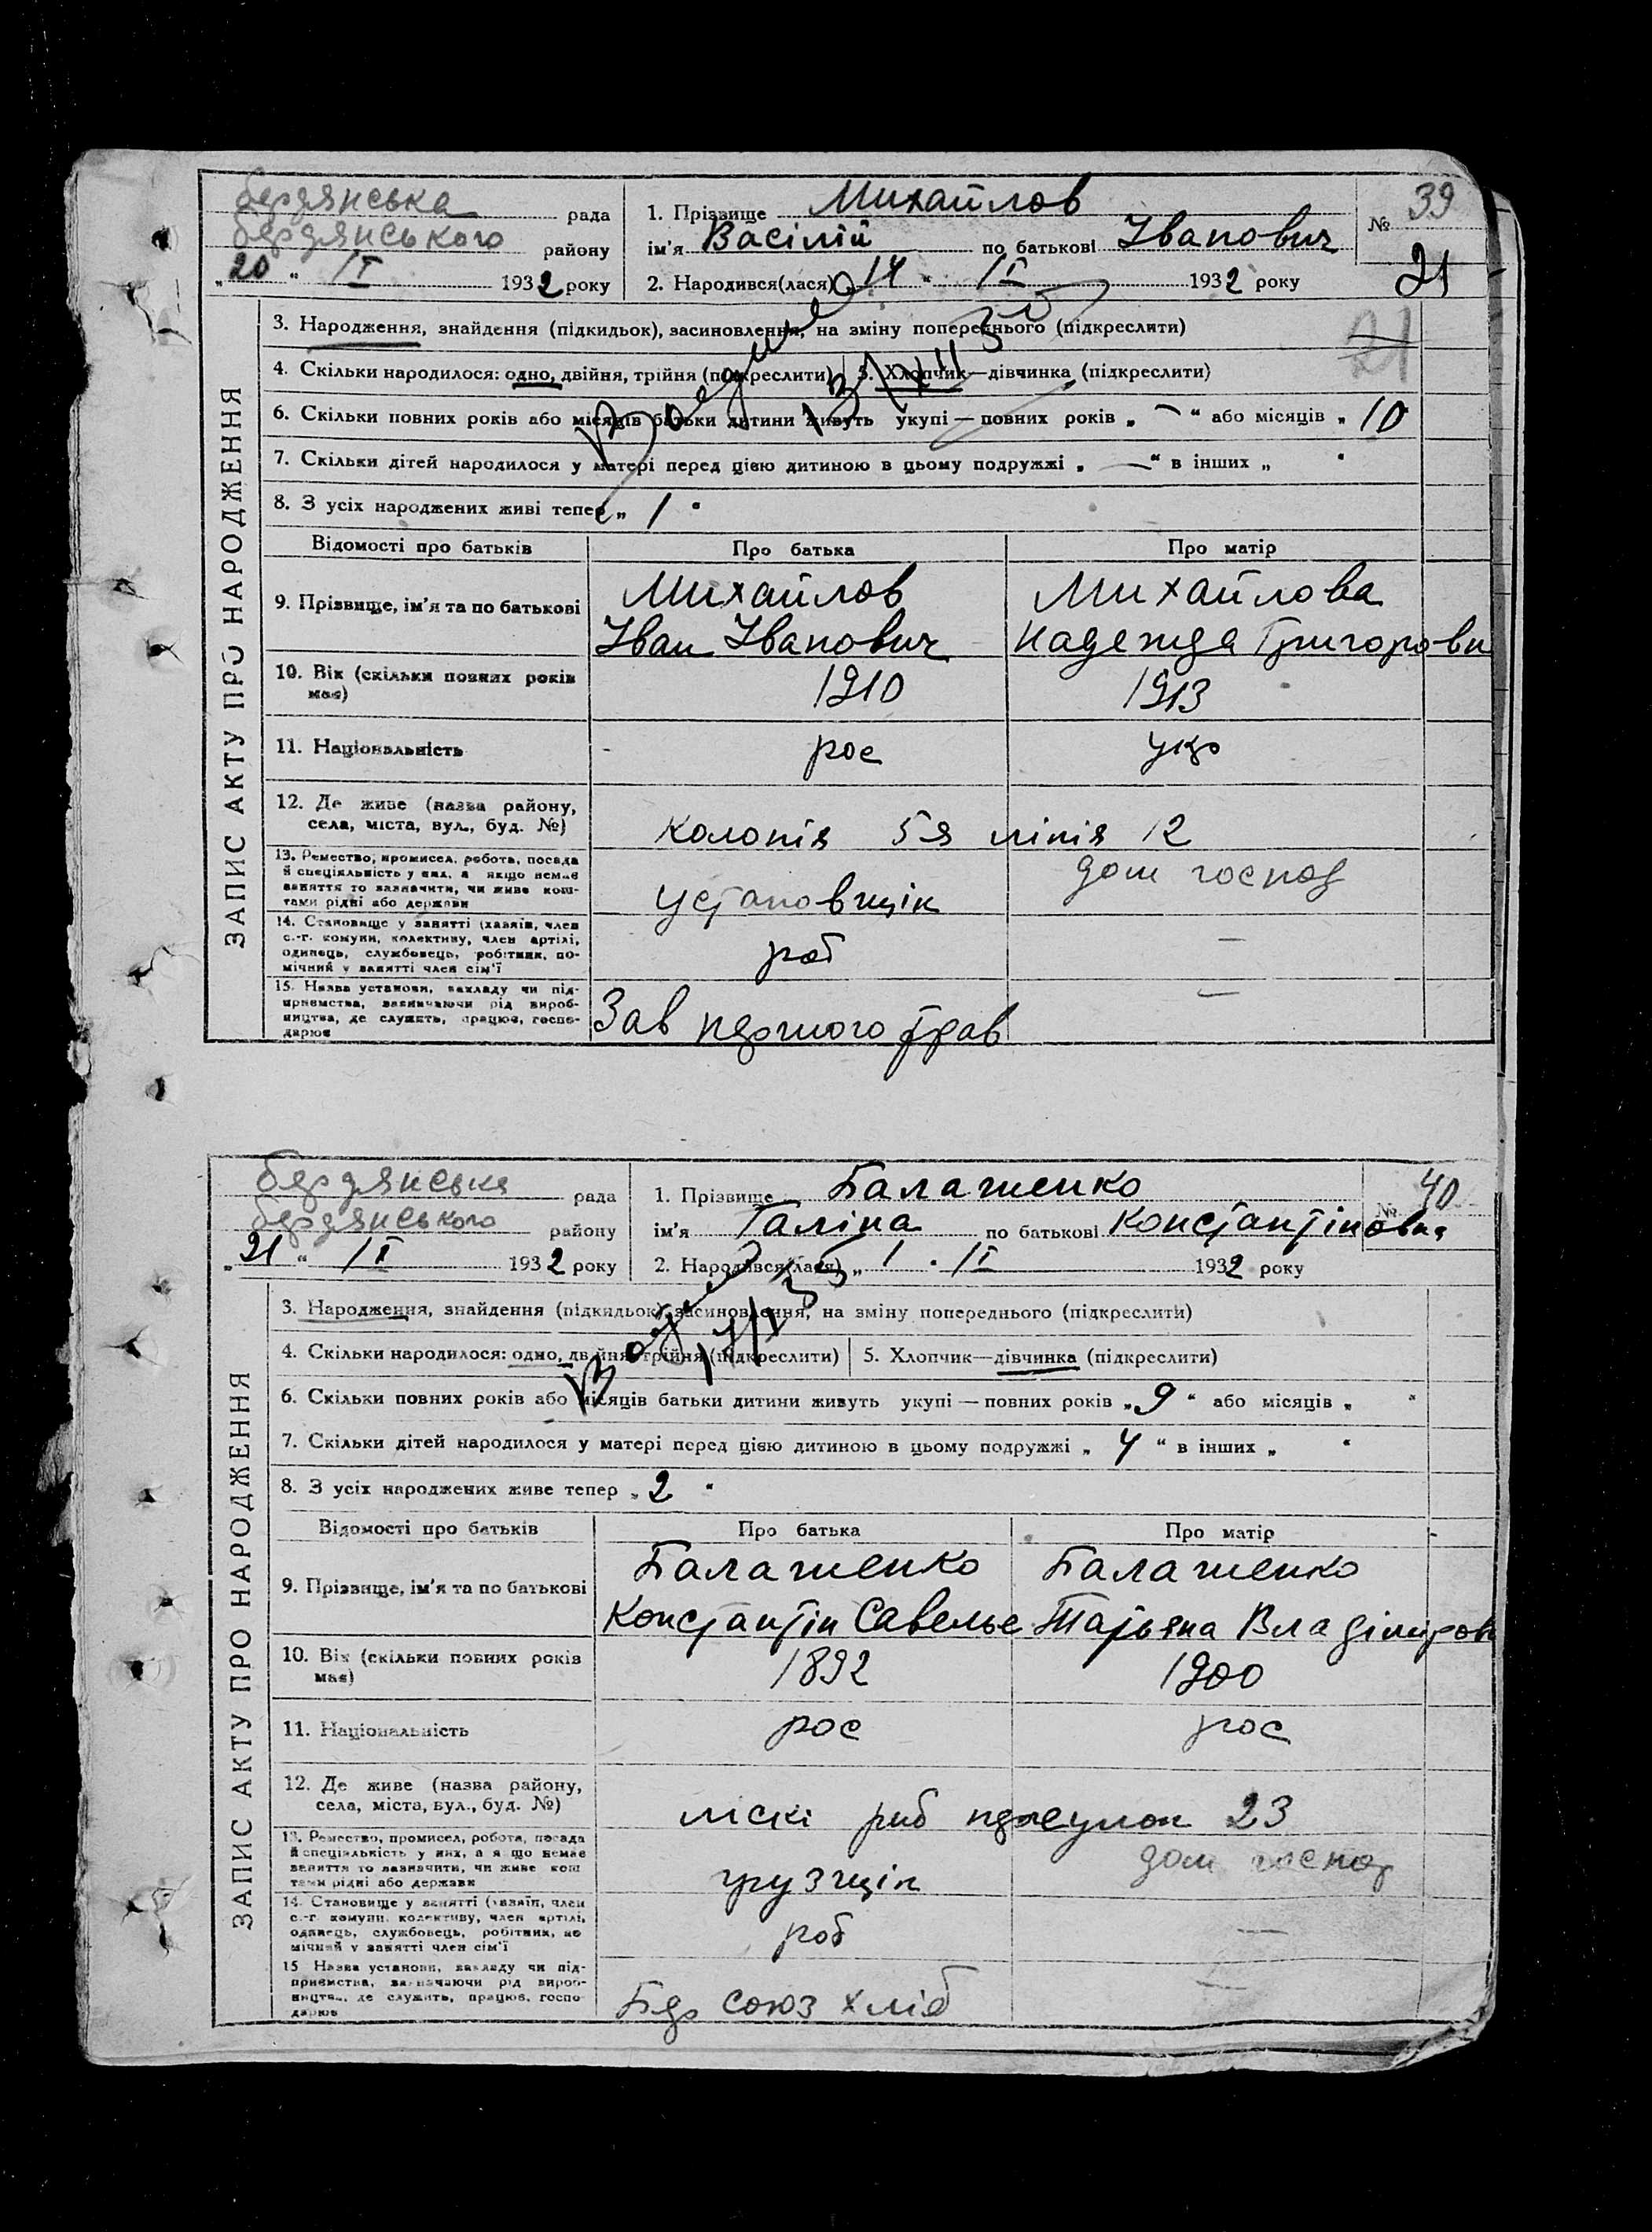 бердянська рада
бердянського району
„20“ II 1932 року
1. Прізвище Михайлов
ім'я Васілій по батькові Іванович
2. Народився(лася) 14 “ II 1932 року
№ 39
21
ЗАПИС АКТУ ПРО НАРОДЖЕННЯ
3. Народження, знайдення (підкидьок), засиновлення, на зміну попереднього (підкреслити)
21
4. Скільки народилося: одно, двійня, трійня (підкреслити) 5. Хлопчик—дівчинка (підкреслити)
6. Скільки повних років або місяців батьки дитини живуть укупі — повних років „ — “ або місяців „ 10
7. Скільки дітей народилося у матері перед цією дитиною в цьому подружжі „ — “ в інших „ “
8. З усіх народжених живі тепер „ 1 “
Відомості про батьків Про батька Про матір
9. Прізвище, ім'я та по батькові Михайлов Михайлова
Іван Іванович Надежда Григоровн
10. Вік (скільки повних років має) 1910 1913
11. Національність рос укр
12. Де живе (назва району,
села, міста, вул., буд. №) Колонія 5-я лінія 12
13. Ремество, промисел, робота, посада
й спеціяльність у них, а якщо немає
заняття то зазначити, чи живе кош-
тами рідні або держави
установщік дом господ
14. Становище у занятті (хазяїн, член
с.-г. комуни, колективу, член артілі,
одинець, службовець, робітник, по-
мічний у занятті член сім'ї
роб —
15. Назва установи, закладу чи під-
приємства, зазначаючи рід вироб-
ництва, де служить, працює, госпо-
дарює
Зав першого трав —
бердянська рада
бердянського району
„21“ II 1932 року
1. Прізвище Балашенко
ім'я Галіна по батькові Константіновна
2. Народився(лася) „ 1 . II 1932 року
№ 40
ЗАПИС АКТУ ПРО НАРОДЖЕННЯ
3. Народження, знайдення (підкидьок), засиновлення, на зміну попереднього (підкреслити)
4. Скільки народилося: одно, двійня, трійня (підкреслити) 5. Хлопчик—дівчинка (підкреслити)
6. Скільки повних років або місяців батьки дитини живуть укупі — повних років „9“ або місяців „ “
7. Скільки дітей народилося у матері перед цією дитиною в цьому подружжі „ 4 “ в інших „ “
8. З усіх народжених живе тепер „2 “
Відомості про батьків Про батька Про матір
9. Прізвище, ім'я та по батькові Балашенко Балашенко
Константін Савелье Татьяна Владіміровн
10. Вік (скільки повних років має) 1892 1900
11. Національність рос рос
12. Де живе (назва району,
села, міста, вул., буд. №) ліскі риб переулок 23
13. Ремество, промисел, робота, посада
й спеціяльність у них, а якщо немає
заняття то зазначити, чи живе кош
тами рідні або держави
грузщік дом господ
14. Становище у занятті (хазяїн, член
с.-г. комуни, колективу, член артілі,
одинець, службовець, робітник, по
мічний у занятті член сім'ї
роб —
15 Назва установи, закладу чи під-
приємства, зазначаючи рід вироб-
ництва, де служить, працює, госпо
дарює
Бер союз хліб —